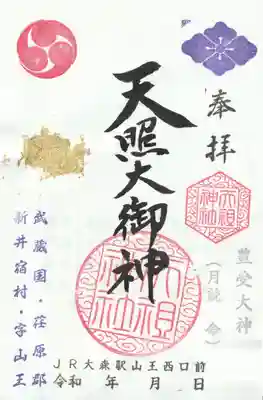 奉拝
天照大御神
豊受大神
(月読命)
天祖神社
天祖神社
武蔵国・荏原郡
新井宿村・字山王
JR大森駅山王西口前
令和 年 月 日